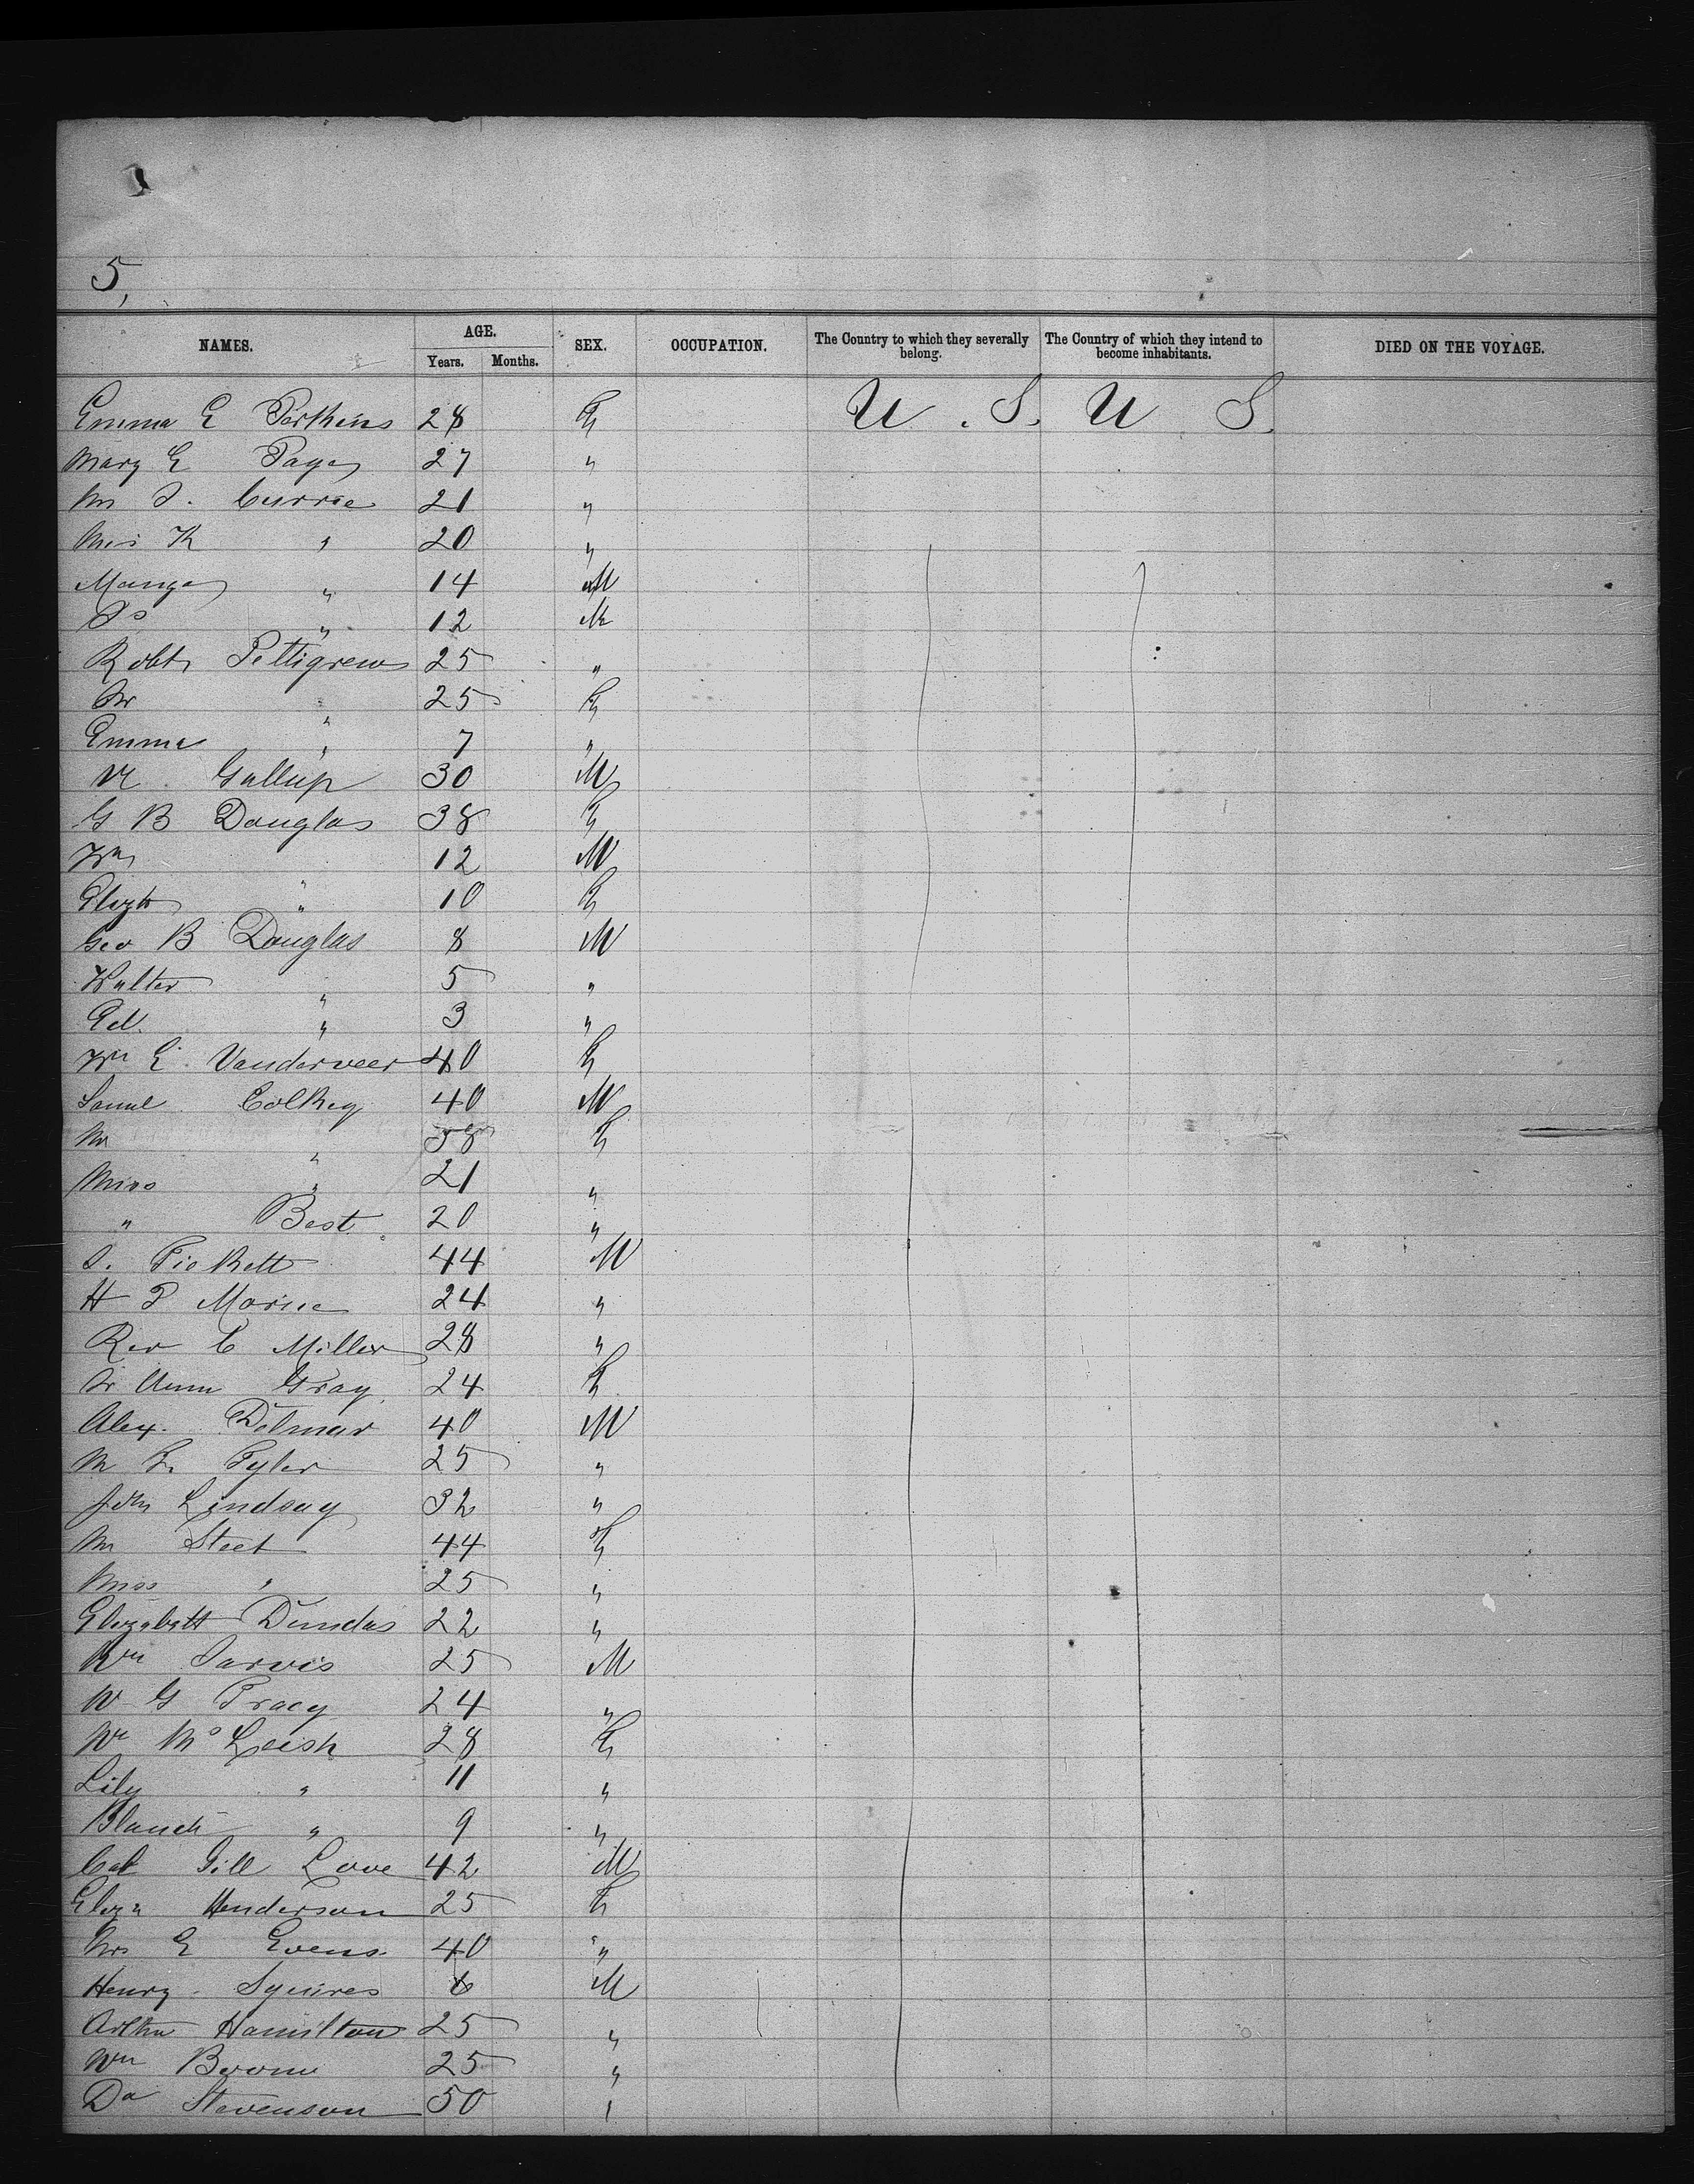 5,
NAMES. AGE. Years. Months. SEX. OCCUPATION. The Country to which they severally belong. The Country of which they intend to become inhabitants. DIED ON THE VOYAGE.
Emma E Perkins 28 F U.S. U S.
Mary E Page 27 "
J. Currie 21 "
K " 20 "
" 14 M
" 12 M
Robt Pettigrew 25 "
" 25 F
Emma " 7 "
Gallup 30 M
G B Douglas 38 F
Wm 12 M
Elizth " 10 F
Geo B Douglas 8 M
Walter " 5 "
Ed. " 3 "
E. Vanderveer 40 F
Saml Colkey 40 M
" 38 F
Miss " 21 "
" Best 20 "
Pickett 44 M
H P 24 "
Rev C Miller 28 "
Ann Gray 24 F
Alex. Delmar 40 M
M L Tyler 25 "
Jn Lindsay 32 "
Steet 44 F
Miss " 25 "
Elizabeth Dundas 22 "
Wm Jarvis 25 M
W G Tracy 24 "
McLeish 28 F
Lily " 11 "
Blanch " 9 "
Gill Love 42 M
Eliza Henderson 25 F
Mrs E Evens 40 "
Henry Squires 6 M
Arthur Hamilton 25 "
Wm 25 "
Stevenson 50 "